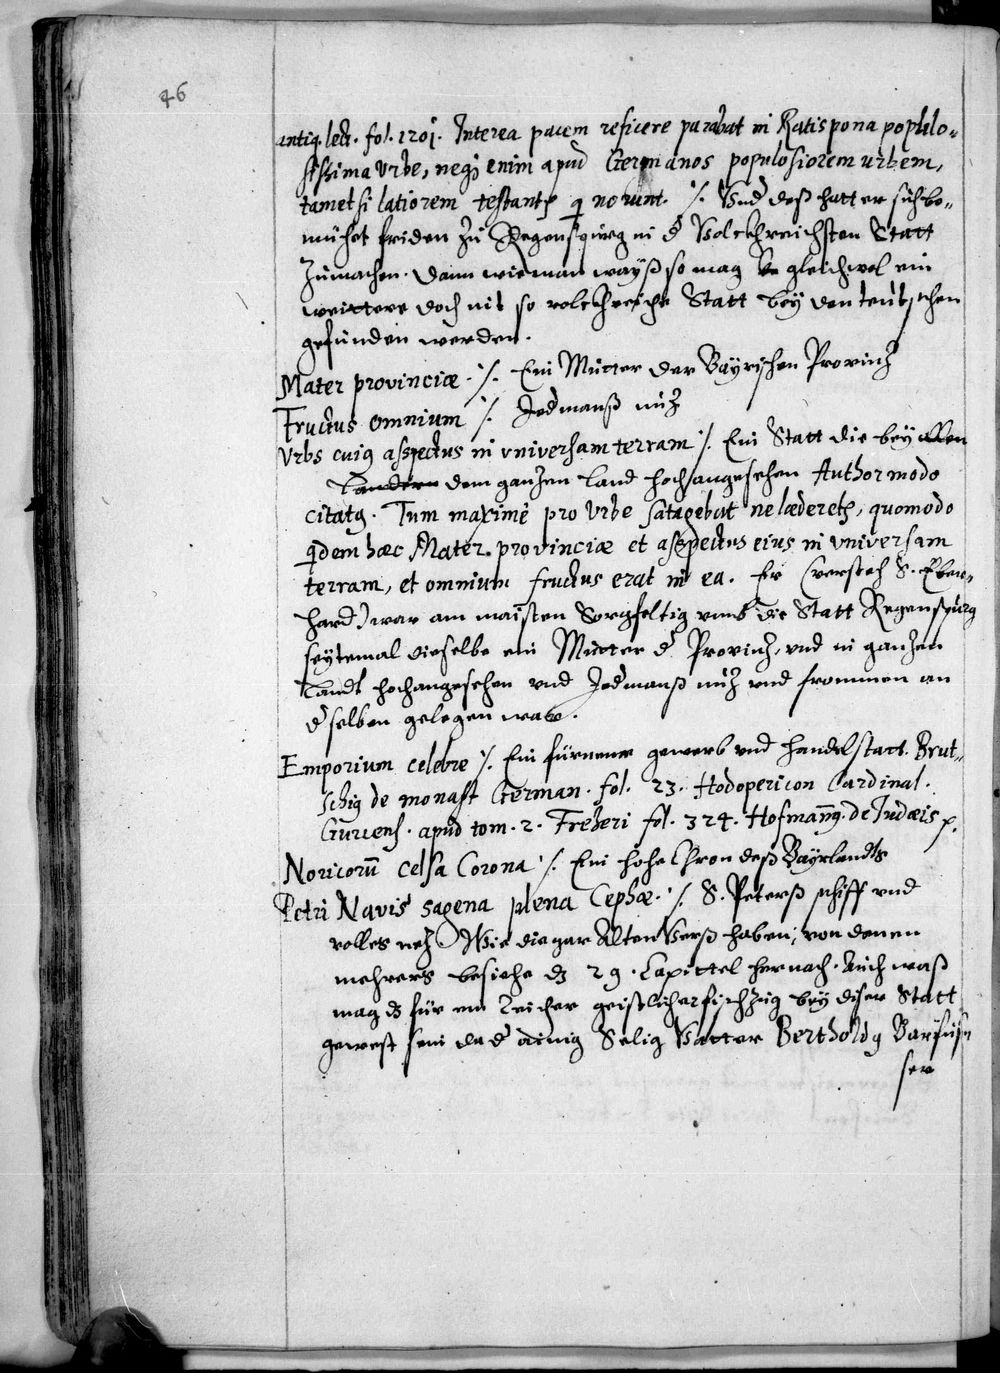 46
antiq. lect. fol. 1201. Interea pacem reficere parabat in Ratispona populo-
sissima Vrbe, neq; enim apud Germanos populosiorem urbem,
tametsi latiorem testantr q norunt. ·/. Vnd deß hatt er sich be-
mühet friden zu Regenspurg in d Volckhreichsten Statt
zumachen. dann wie man wayß so mag gleichwol ein
weittere doch nit so volckhreiche Statt bey den teutschen
gefunden werden.
Mater provinciæ ·/. Ein Mutter der Bayrischen Provinz
Fructus omnium ·/. Jedmanß nuz
Vrbs cuiq aspectus in vniversam terram ·/. Ein Statt die bey allen
Landern dem ganzen Land hochangesehen Author modo
citatq. Tum maximè pro Vrbe satagebat ne læderetr, quomodo
qdem hæc Mater provinciæ et aspectus eius in vniversam
terram, et omnium fructus erat in ea. Er (verstehe S. Eber-
hard) war am maisten Sorgfeltig vmb die Statt Regenspurg
seytemal dieselbe ein Mutter d Provinz, vnd in ganzen
Landt hochangesehen vnd Jedmanß nuz vnd frommen an
dselben gelegen ware.
Emporium celebre ·/. Ein fürneme gewerb vnd handelstatt. Brut-
schig de monast German. fol. 23. Hodoepericon Cardinal.
Gurcens. apud tom. 2. Freheri fol. 324. Hofmanng. de Judæis p.
Noricorū celsa Corona ·/. Ein hohe Chron deß Bayrlandts
Petri Navis sagena plena Cephæ. ·/. S. Peterß schiff vnd
volles nez. Wie die gar Alten Verß haben, von denen
mehrers besiehe dz 29. Capittel hernach. Auch waß
mag dz für ein reicher geistlicher fischzug bey diser Statt
gewest sein da d ainig Selig Vatter Bertholdq Barfuese
ser